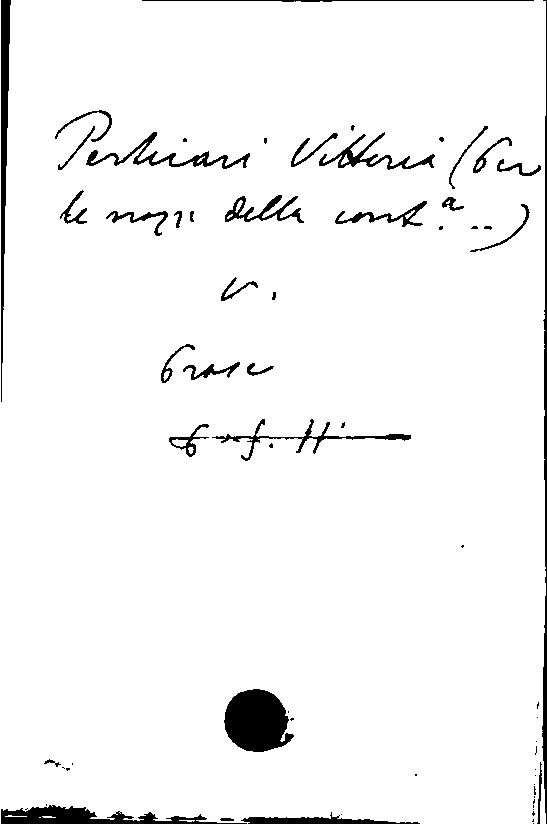 Perticari Vittoria (Per
le nozze della cont.a ...)
v.
Prose